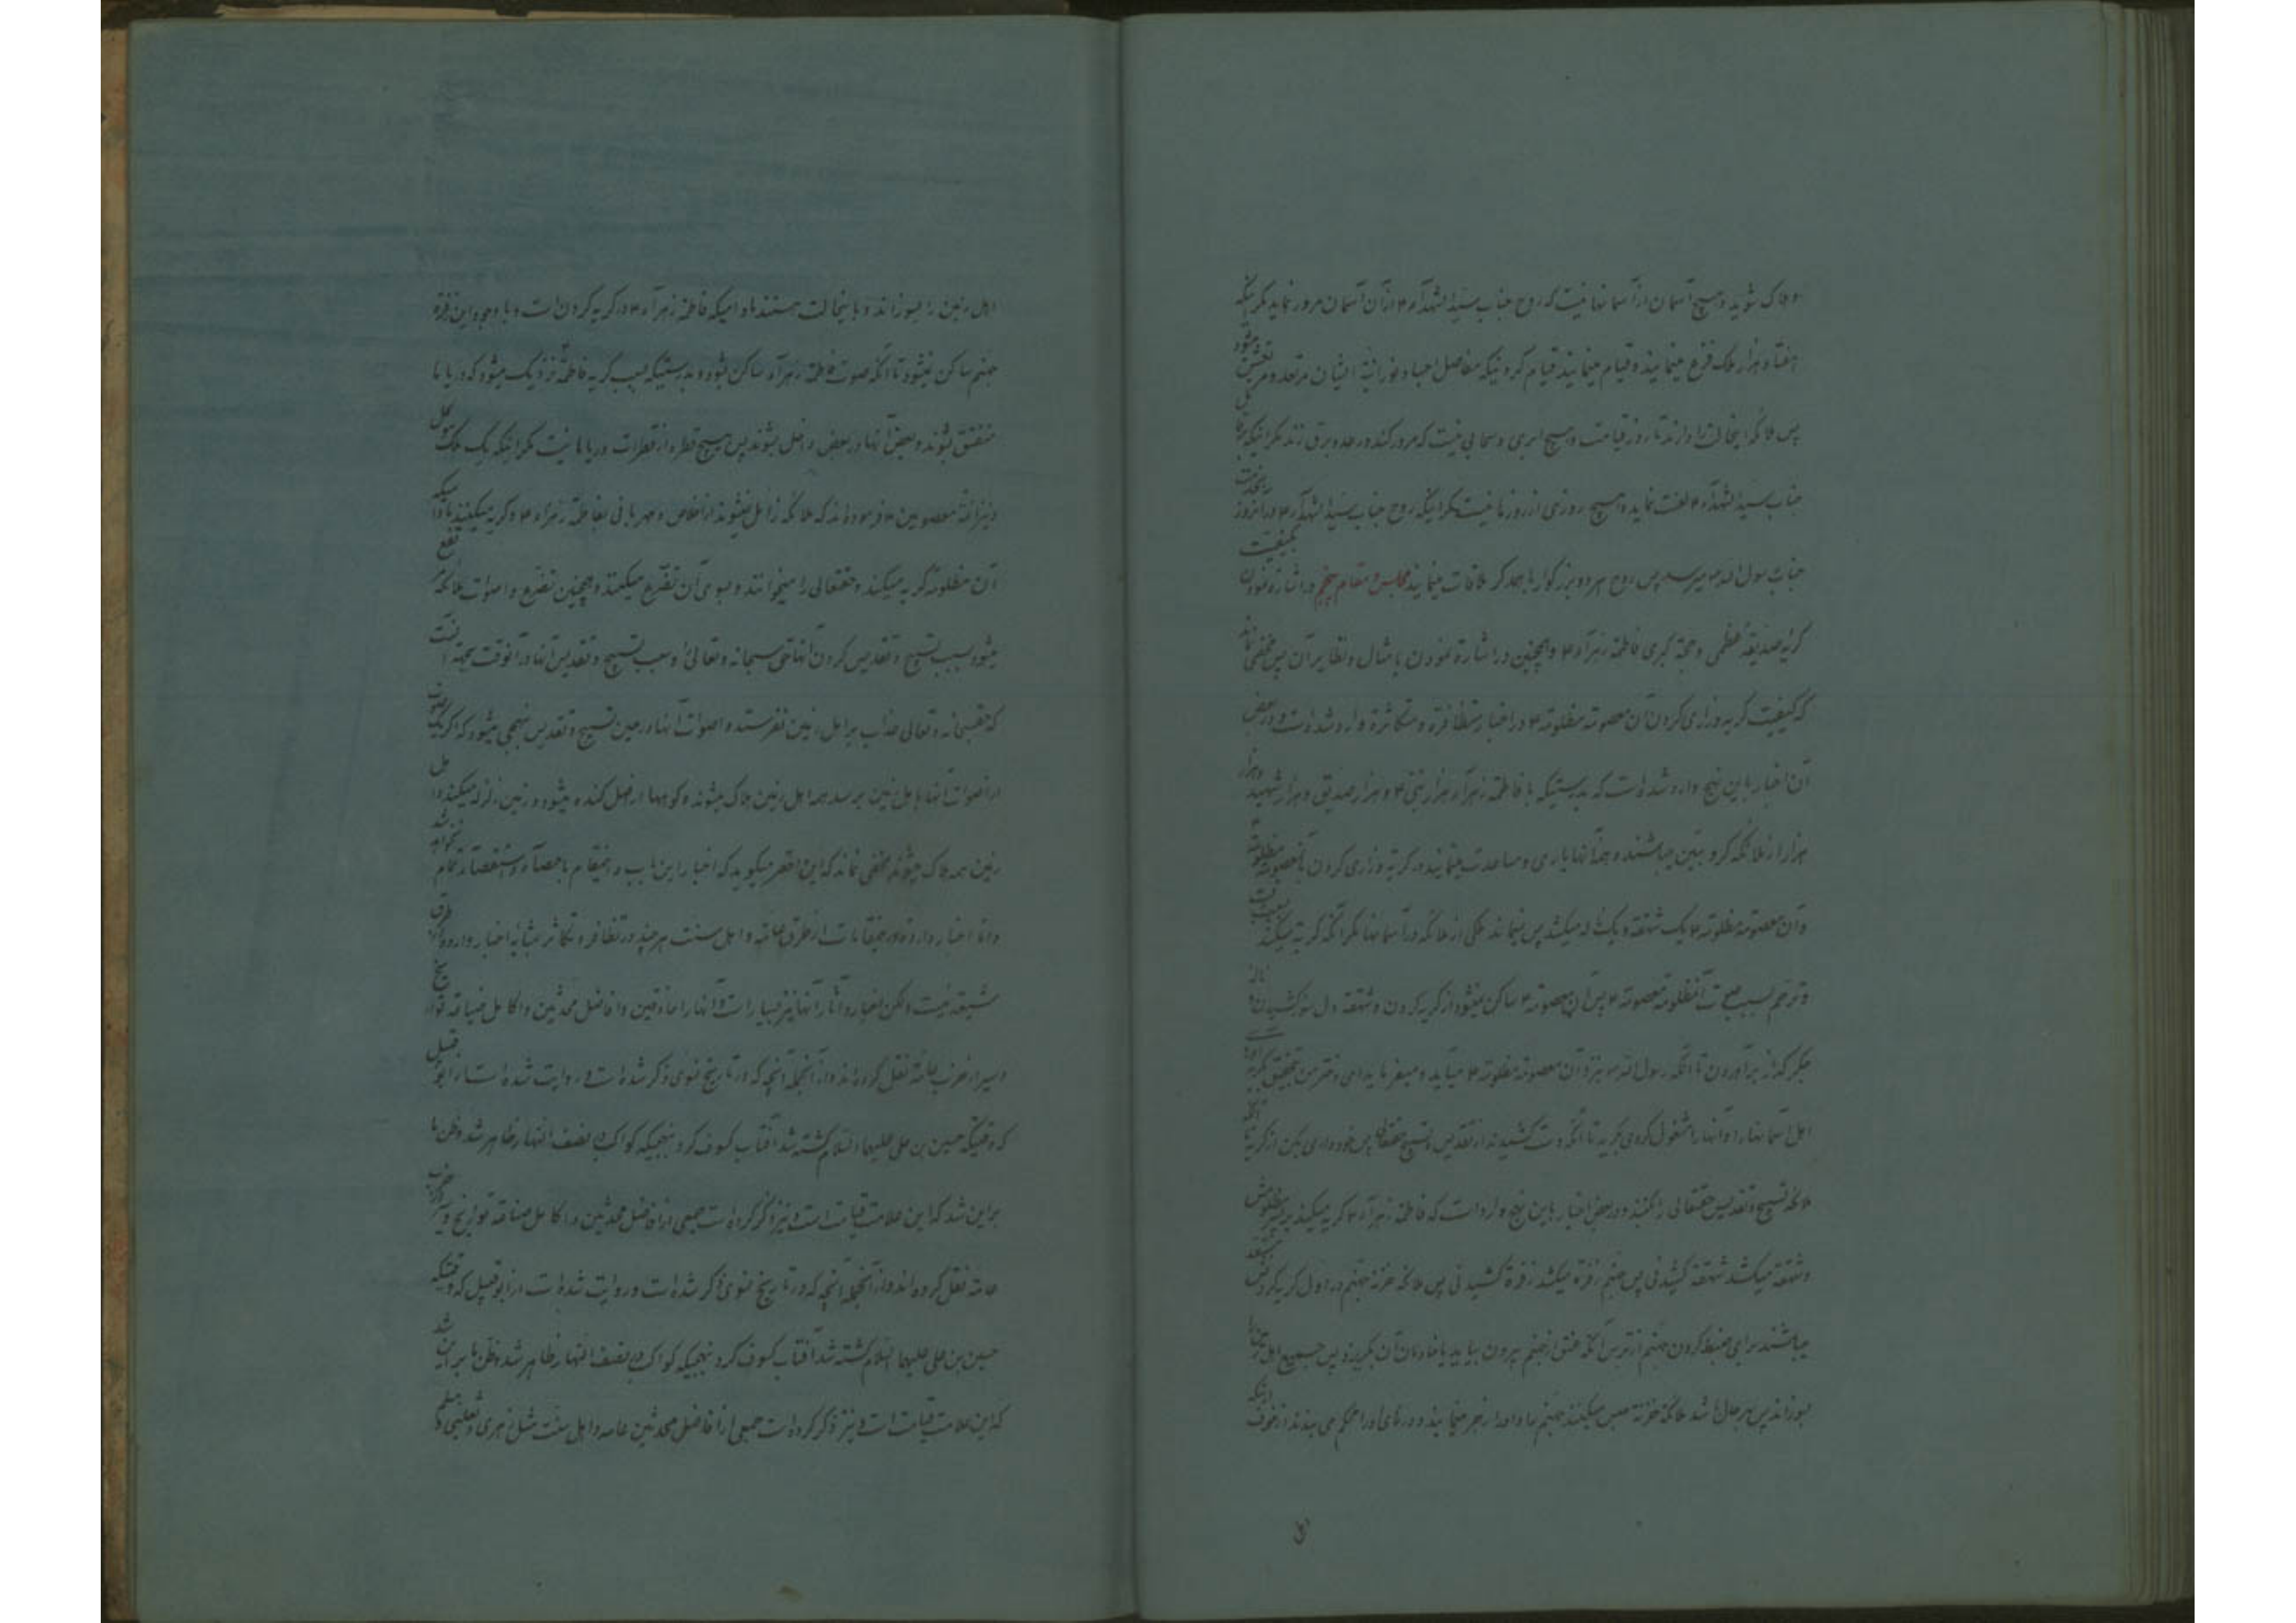 و هلاک شوید و هیچ آسمان از آسمانها نیست که روح جناب سید الشهدآء ۴ از آن آسمان مرور نماید مگر اینکه
هفتاد هزار ملک فزع مینمایند و قیام مینمایند قیام کردنیکه مفاصل اجساد نورانیه ایشان مرتعد و مرتعش میشود
پس ملائکه اینحالت را دارند تا روز قیامت و هیچ ابری و سحابی نیست که مرور کند و رعد و برق زند مگر اینکه بر قاتل
جناب سید الشهدآء ۴ لعنت نماید و هیچ روزی از روزها نیست مگر اینکه روح جناب سید الشهدآء ۴ در آنروز بخدمت
جناب رسول الله ص میرسد پس روح هر دو بزرگوار با همدگر ملاقات مینمایند مجلس و مقام پنجم در اشاره نمودن بکیفیت
گریه صدیقه عظمی و حجة کبری فاطمه زهرآء ۴ و همچنین در اشارة نمودن بامثال و نظایر آن پس مخفی نماند
که کیفیت گریه و زاری کردن آن معصومه مظلومه ۴ در اخبار متظافرة و متکاثرة وارد شده است و در بعض
آن اخبار باین نهج وارد شده است که بدرستیکه با فاطمه زهرآء هزار نبی ۴ و هزار صدیق و هزار شهید و هزار
هزار از ملائکه کروبیّین میباشند و همه آنها یاری و مساعدت مینمایند در گریه و زاری کردن بآنمعصومه مظلومه
و آن معصومه مظلومه ۴ یک شهقه و یک ناله میکشد پس نمیماند ملکی از ملائکه در آسمانها مگر آنکه گریه میکند
و ترحم بسبب صوت آنمظلومه معصومه ۴ پس آن معصومه ۴ ساکن نمیشود از گریه کردن و شهقه دل سوز کشیدن و ناله
جگر گداز برآوردن تا آنکه رسول الله ص بنزد آن معصومه مظلومه ۴ میآید و میفرماید ای دختر من بتحقیق بگریه آوردی
اهل آسمانها را و آنها را مشغول کردی بگریه تا آنکه دست کشیدند از تقدیس و تسبیح حقتعالی پس خودداری بکن از گریه تا آنکه
ملائکه تسبیح و تقدیس حقتعالی را بکنند و در بعض اخبار باین نهج وارد است که فاطمه زهرآء ۴ گریه میکند بر پسر مظلومش
و شهقه میکشد شهقه کشیدنی پس جهنم زفرة میکشد زفرة کشیدنی پس ملائکه خزنه جهنم در اول گریه کردنش مستعد
میباشند برای ضبط کردن جهنم از ترس آنکه عنق از جهنم بیرون بیاید یا دخان آن بگریزد پس جمیع اهل زمین را
بسوزاند پس بهر حال باشد ملائکه خزنه حبس میکنند جهنم را و او را زجر مینمایند و درهای او را محکم می بندند از خوف اینکه
اهل زمین را بسوزاند و باینحالت هستند مادامیکه فاطمه زهرآء ۴ در گریه کردن است و با وجود این زفرة
جهنم ساکن نمیشود تا آنکه صوت فاطمه زهرآء ساکن بشود و بدرستیکه بسبب گریه فاطمه ۴ نزدیک میشود که دریاها
منفتق بشوند و بعض آنها در بعض داخل بشوند پس هیچ قطره از قطرات دریاها نیست مگر اینکه یک ملک موکل
و نیز ائمه معصومین ۴ فرموده اند که ملائکه زایل نمیشوند از اخلاص و مهربانی بفاطمه زهراء ۴ و گریه میکنند مادامیکه
آن مظلومه گریه میکند و حقتعالی را میخوانند و بسوی آن تضرع میکنند و همچنین تضرع و اصوات ملائکه مرتفع
میشود بسبب تسبیح و تقدیس کردن آنها حق سبحانه و تعالی را و سبب تسبیح و تقدیس آنها در آنوقت بجهة آنست
که حقسبحانه و تعالی عذاب بر اهل زمین نفرستد و اصوات آنها در حین تسبیح و تقدیس بنهجی میشود که اگر یک صوت
از اصوات آنها باهل زمین برسد همه اهل زمین هلاک میشوند و کوهها از اصل کنده میشود و زمین زلزله میکند و اهل
زمین همه هلاک میشوند مخفی نماند که این احقر میگوید که اخبار این باب در اینمقام باحصآء و استقصآء تمام نخواهد شد
و اما اخبار وارده در اینمقامات از طرق عامه و اهل سنت هر چند در تظافر و تکاثر بمثابه اخبار وارده از طرق
شیعه نیست ولکن اخبار و آثار آنها نیز بسیار است و آنها را حاذقین و افاضل محدثین و اکامل صناعة تواریخ
و سیر از حزب عامه نقل کرده اند و از آنجمله آنچه که در تاریخ فسوی ذکر شده است و روایت شده است از ابوقبیل
که وقتیکه حسین بن علی علیهما السلام کشته شد آفتاب کسوف کرد بنهجیکه کواکب در نصف النهار ظاهر شد و ظن ما
بر این شد که این علامت قیامت است و نیز ذکر کرده است جمیعی از افاضل محدثین و اکامل صناعة تواریخ و سیر از حزب
عامه نقل کرده اند و از آنجمله آنچه که در تاریخ فسوی ذکر شده است و روایت شده است از ابوقبیل که وقتیکه
حسین بن علی علیهما السلام کشته شد آفتاب کسوف کرد بنهجیکه کواکب در نصف النهار ظاهر شد و ظن ما بر این شد
که این علامت قیامت است و نیز ذکر کرده است جمیعی از افاضل محدثین عامه و اهل سنت مثل زهری و ثعلبی و مسلم